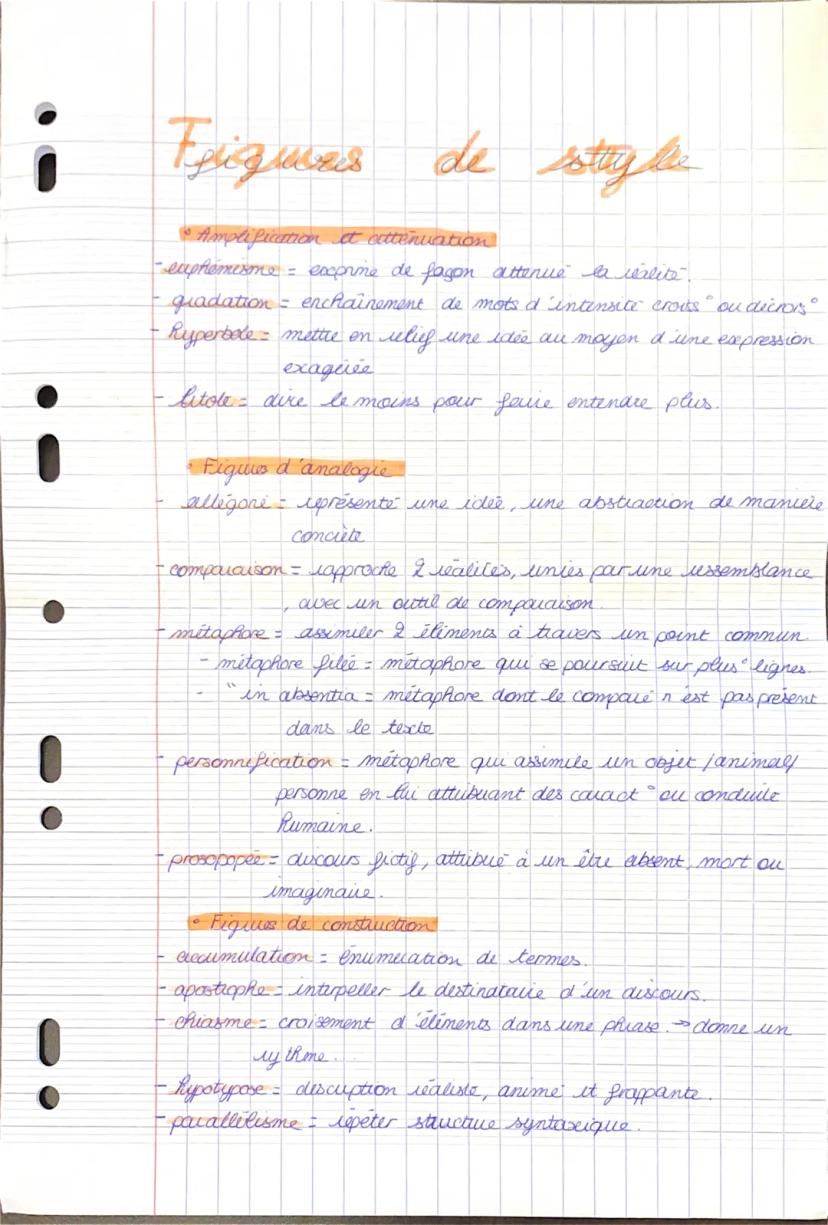 Figures de style
• Amplification et atténuation
- euphémisme = exprime de façon attenué la réalité.
- gradation = enchaînement de mots d'intensité croits° ou décrois°
- hyperbole = mettre en relief une idée au moyen d'une expression
exagérée
- litote = dire le moins pour faire entendre plus.
• Figures d'analogie
- allégorie = représente une idée, une abstraction de manière
concrète
- comparaison = rapproche 2 réalités, unies par une ressemblance
, avec un outil de comparaison.
- métaphore = assimiler 2 éléments à travers un point commun
- métaphore filée = métaphore qui se poursuit sur plus° lignes.
- " in absentia = métaphore dont le comparé n'est pas présent
dans le texte
- personnification = métaphore qui assimile un objet / animal /
personne en lui attribuant des caract° ou conduite
humaine.
- prosopopée = discours fictif, attribué à un être absent, mort ou
imaginaire.
• Figures de construction
- accumulation = énumération de termes.
- apostrophe = interpeller le destinataire d'un discours.
- chiasme = croisement d'éléments dans une phrase. → donne un
rythme...
- hypotypose = description réaliste, animé et frappante.
- parallélisme = répéter structure syntaxique.